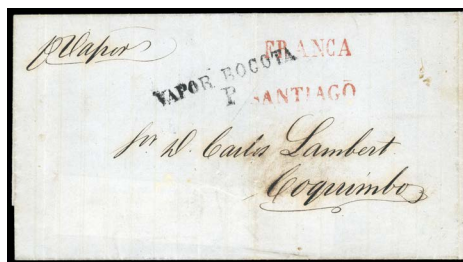 p Vapor
FRANCA
VAPOR BOGOTA
P SANTIAGO
Sor. D. Carlos Lambert
Coquimbo